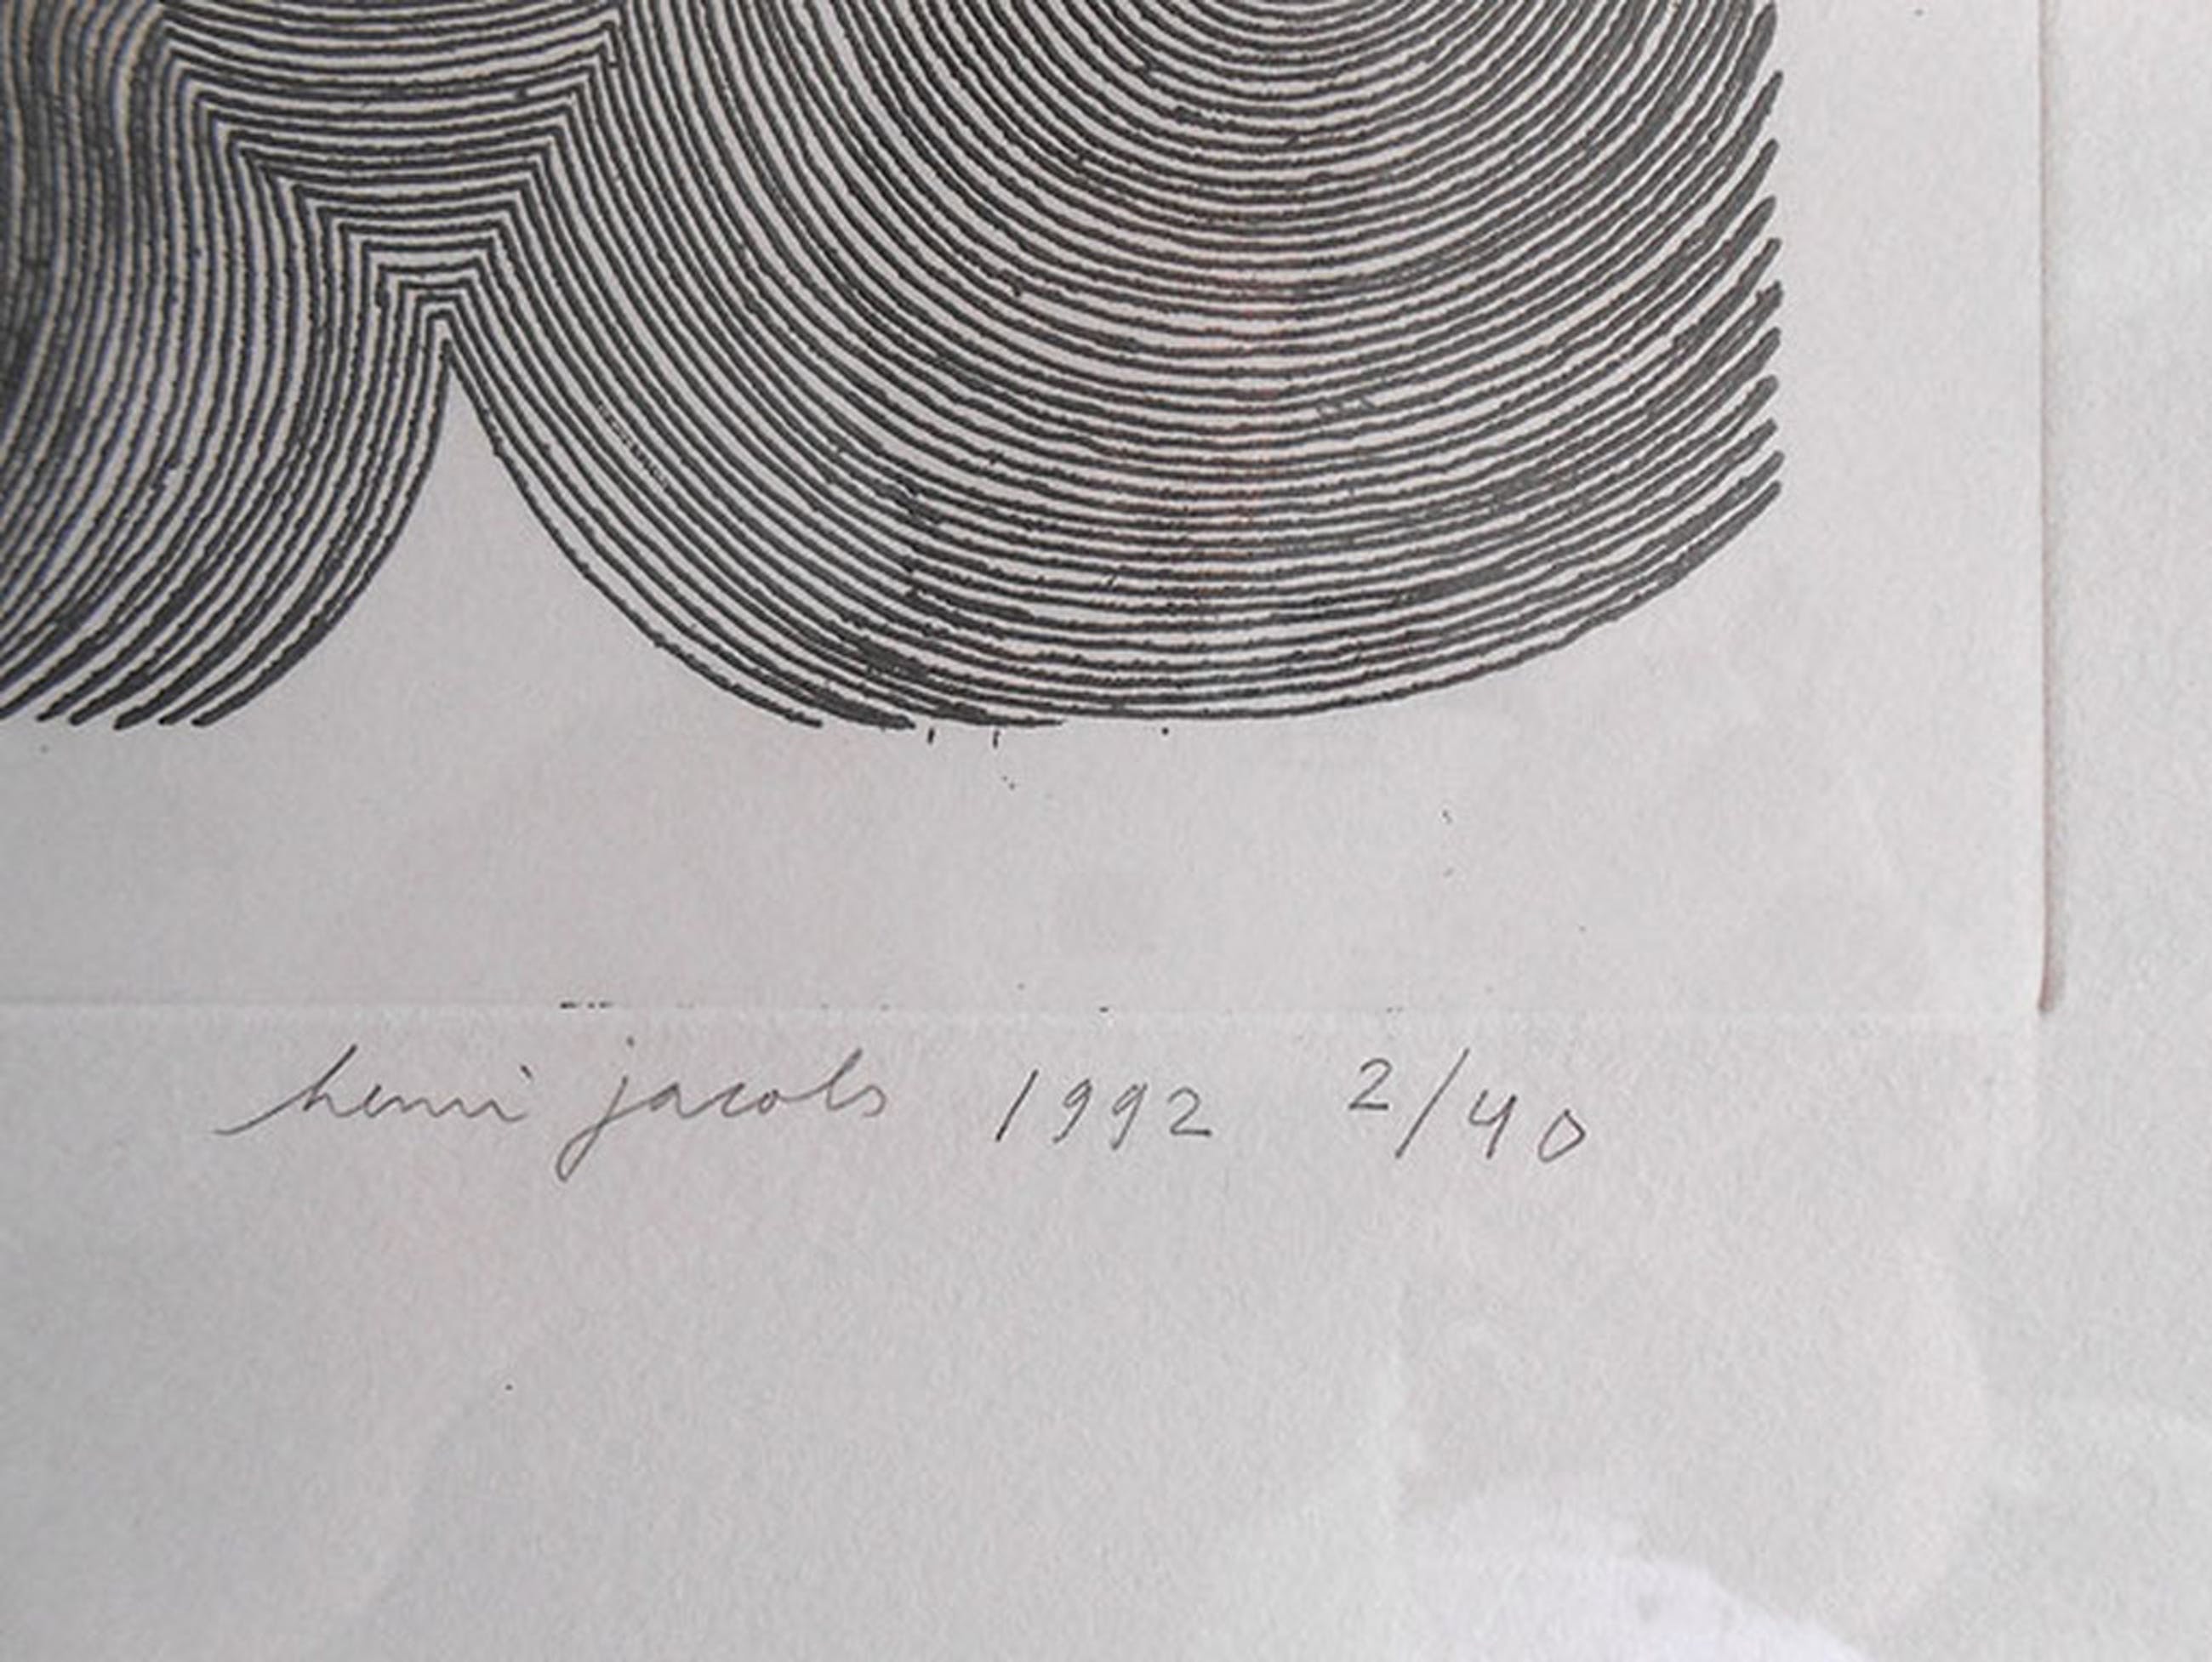 henri jacobs 1992 2/40